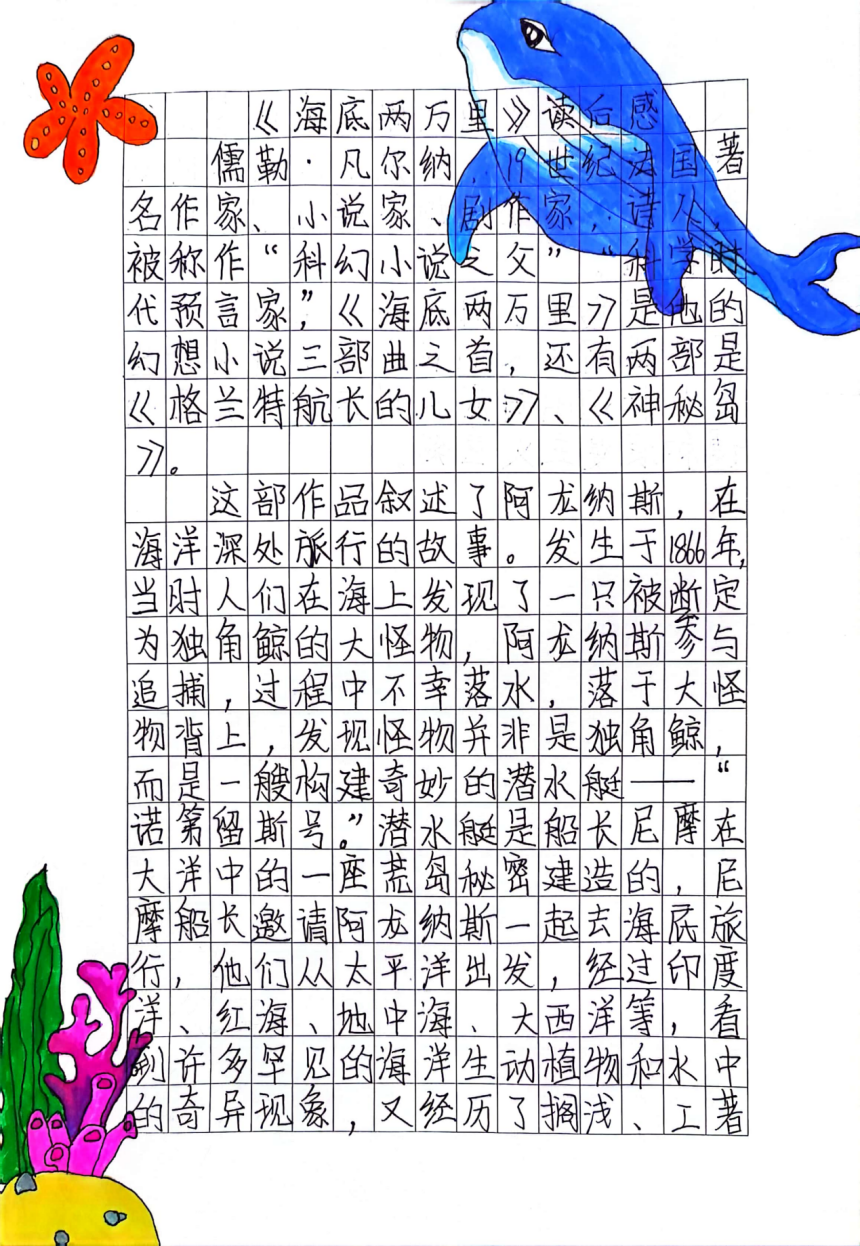 《海底两万里》读后感
儒勒·凡尔纳，19世纪法国著
名作家、小说家、剧作家，诗人，
被称作“科幻小说之父”“科学时
代预言家”，《海底两万里》是他的
幻想小说三部曲之首，还有两部是
《格兰特航长的儿女》、《神秘岛
》。
这部作品叙述了阿龙纳斯，在
海洋深处旅行的故事。发生于1866年，
当时人们在海上发现了一只被断定
为独角鲸的大怪物，阿龙纳斯参与
追捕，过程中不幸落水，落于大怪
物背上，发现怪物并非是独角鲸，
而是一艘构建奇妙的潜水艇——“
诺第留斯号。”潜水艇是船长尼摩在
大洋中的一座荒岛秘密建造的，尼
摩船长邀请阿龙纳斯一起去海底旅
行，他们从太平洋出发，经过印度
洋、红海、地中海、大西洋等，看
到许多罕见的海洋生动植物和水中
的奇异现象，又经历了搁浅、工著